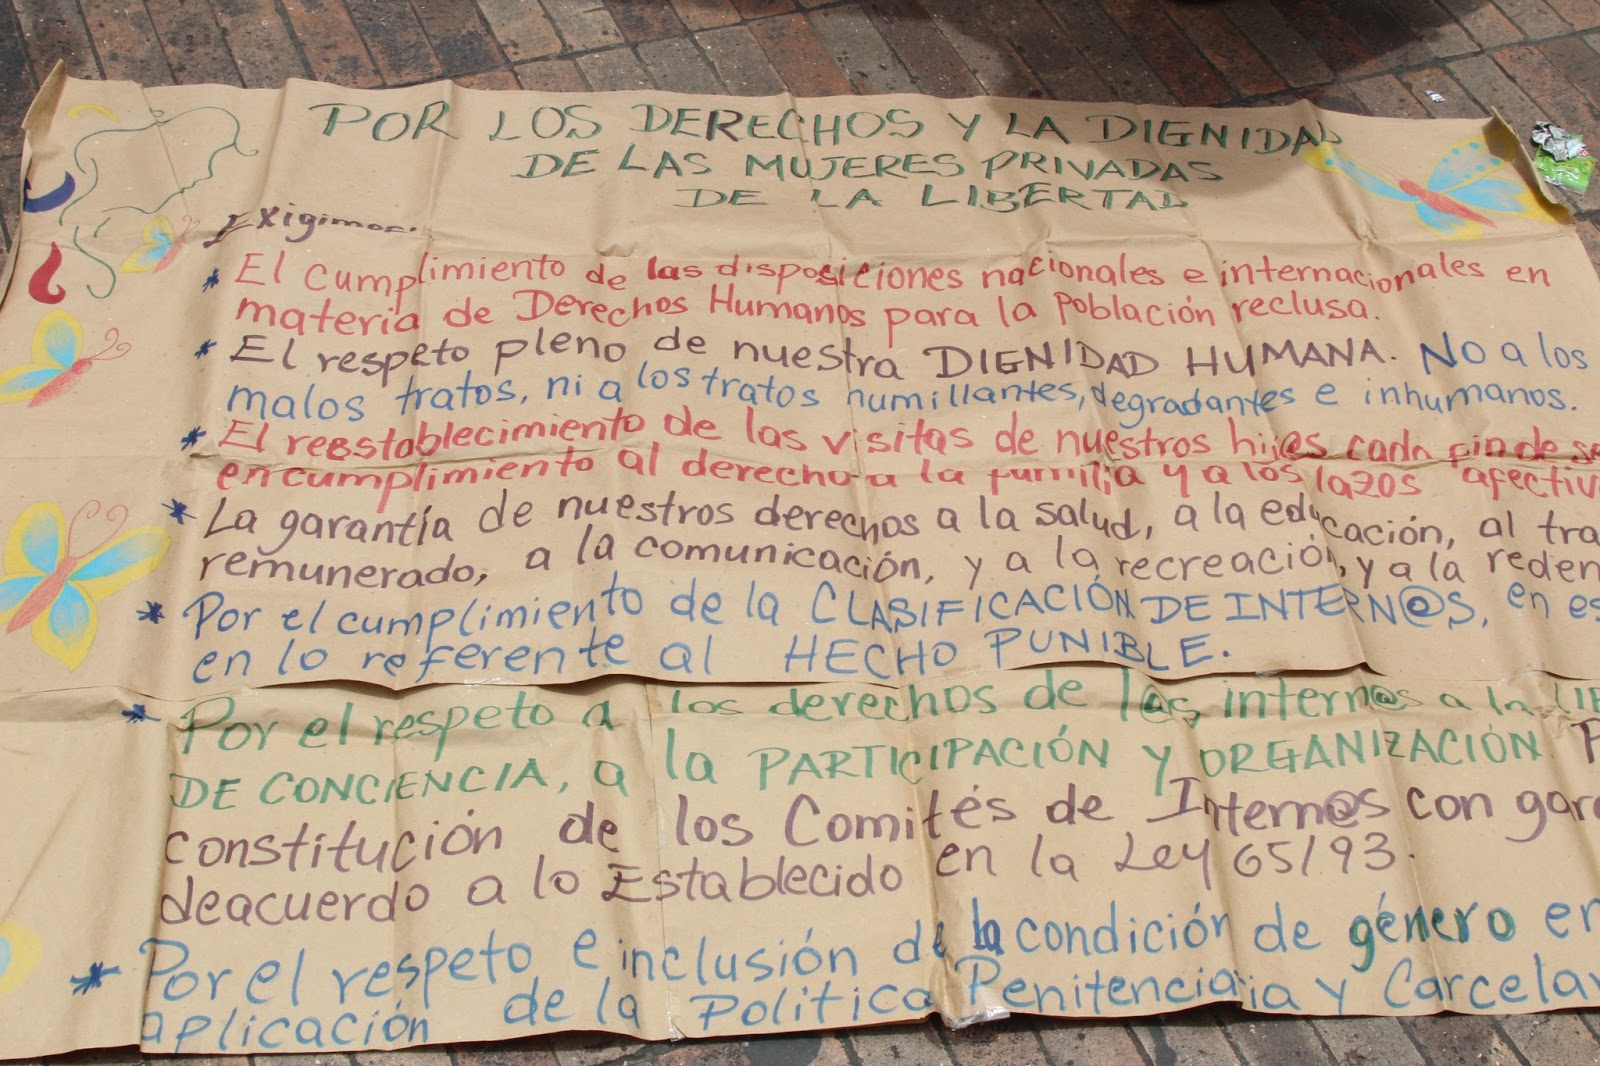 POR LOS DERECHOS Y LA DIGNIDAD
DE LAS MUJERES PRIVADAS
DE LA LIBERTAD
Exigimos:
* El cumplimiento de las disposiciones nacionales e internacionales en
materia de Derechos Humanos para la población reclusa.
* El respeto pleno de nuestra DIGNIDAD HUMANA. NO a los
malos tratos, ni a los tratos humillantes, degradantes e inhumanos.
* El reestablecimiento de las visitas de nuestros hij@s cada fin de se
en cumplimiento al derecho a la familia y a los lazos afectiv
* La garantía de nuestros derechos a la salud, a la educación, al tra
remunerado, a la comunicación, y a la recreación, y a la reden
* Por el cumplimiento de la CLASIFICACIÓN DE INTERN@S, en es
en lo referente al HECHO PUNIBLE.
* Por el respeto a los derechos de l@s intern@s a la LIB
DE CONCIENCIA, a la PARTICIPACIÓN Y ORGANIZACIÓN. P
constitución de los Comités de Intern@s con gara
deacuerdo a lo Establecido en la Ley 65/93.
* Por el respeto e inclusión de la condición de género en
aplicación de la Política Penitenciaria y Carcelar